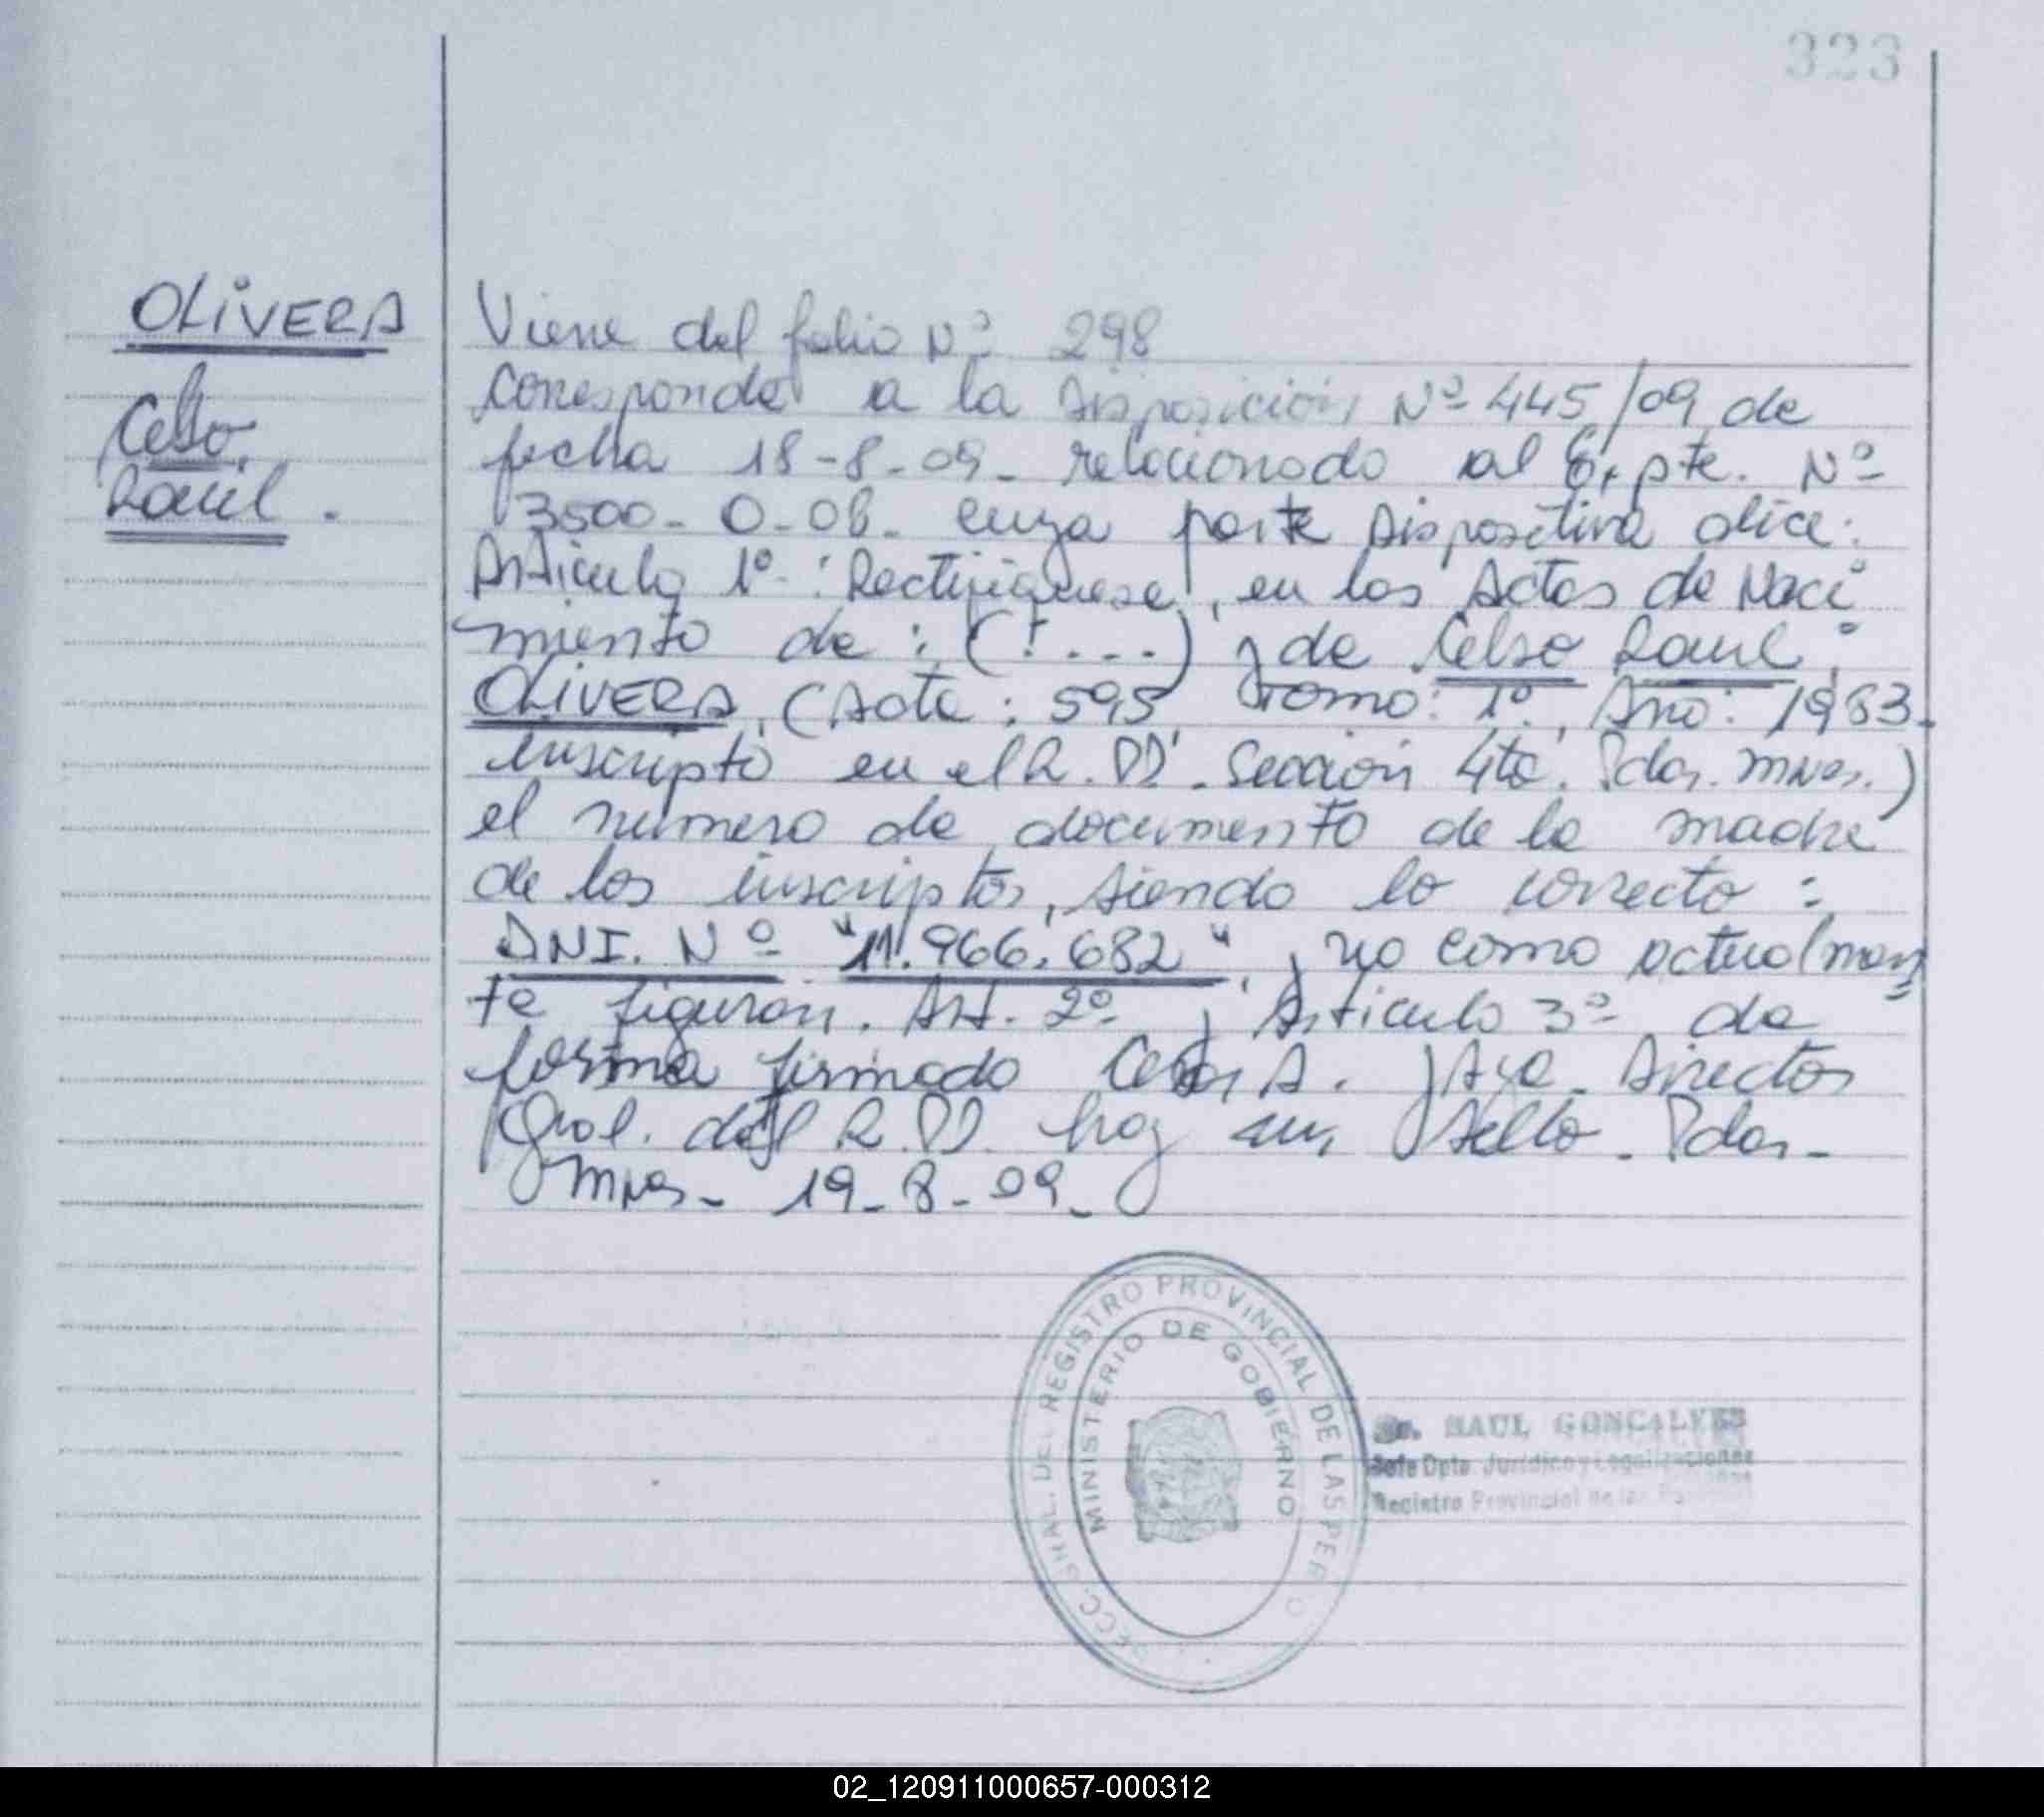 323
OLIVERA
Celso
Raul.
Viene del folio Nº 298
Corresponde a la Disposición Nº 445/09 de
fecha 18-8-09- relacionado al Expte. Nº
3500-O-08- cuya parte Dispositiva dice:
Articulo 1º: Rectifiquese, en las Actas de Naci
miento de: (...) y de Celso Raul
OLIVERA, (Acta: 595 Tomo: 1º, Año: 1983-
inscripto en el R.PP. Sección 4ta. Pdas. Mnes.)
el número de documento de la madre
de los inscriptos, siendo lo correcto:
DNI. Nº "11.966.682", y no como actualmen
te figuran. Art. 2º y Articulo 3º de
forma firmado Cesar A. Director
Gral. del R.PP. hay un sello. Pdas-
Mnes- 19-8-09-
SECC. REGISTRO PROVINCIAL DE LAS PER
MINISTERIO DE GOBIERNO
RAUL GONCALVES
Jefe Dpto. Jurídico y Legalizaciones
Registro Provincial de las
02_120911000657-000312